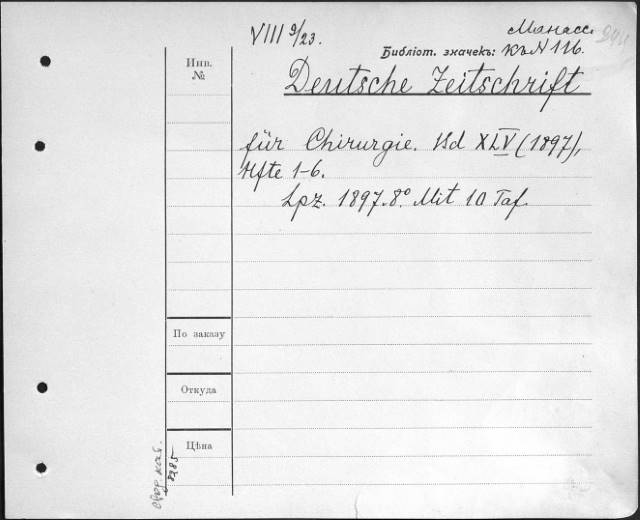 VIII 9/23.
Манасс.
Библіот. значекъ: къ N 116.
Инв.
№
Deutsche Zeitschrift
für Chirurgie. Bd XLV (1897),
Hfte 1-6.
Lpz. 1897. 8° Mit 10 Taf.
По заказу
Откуда
Цѣна